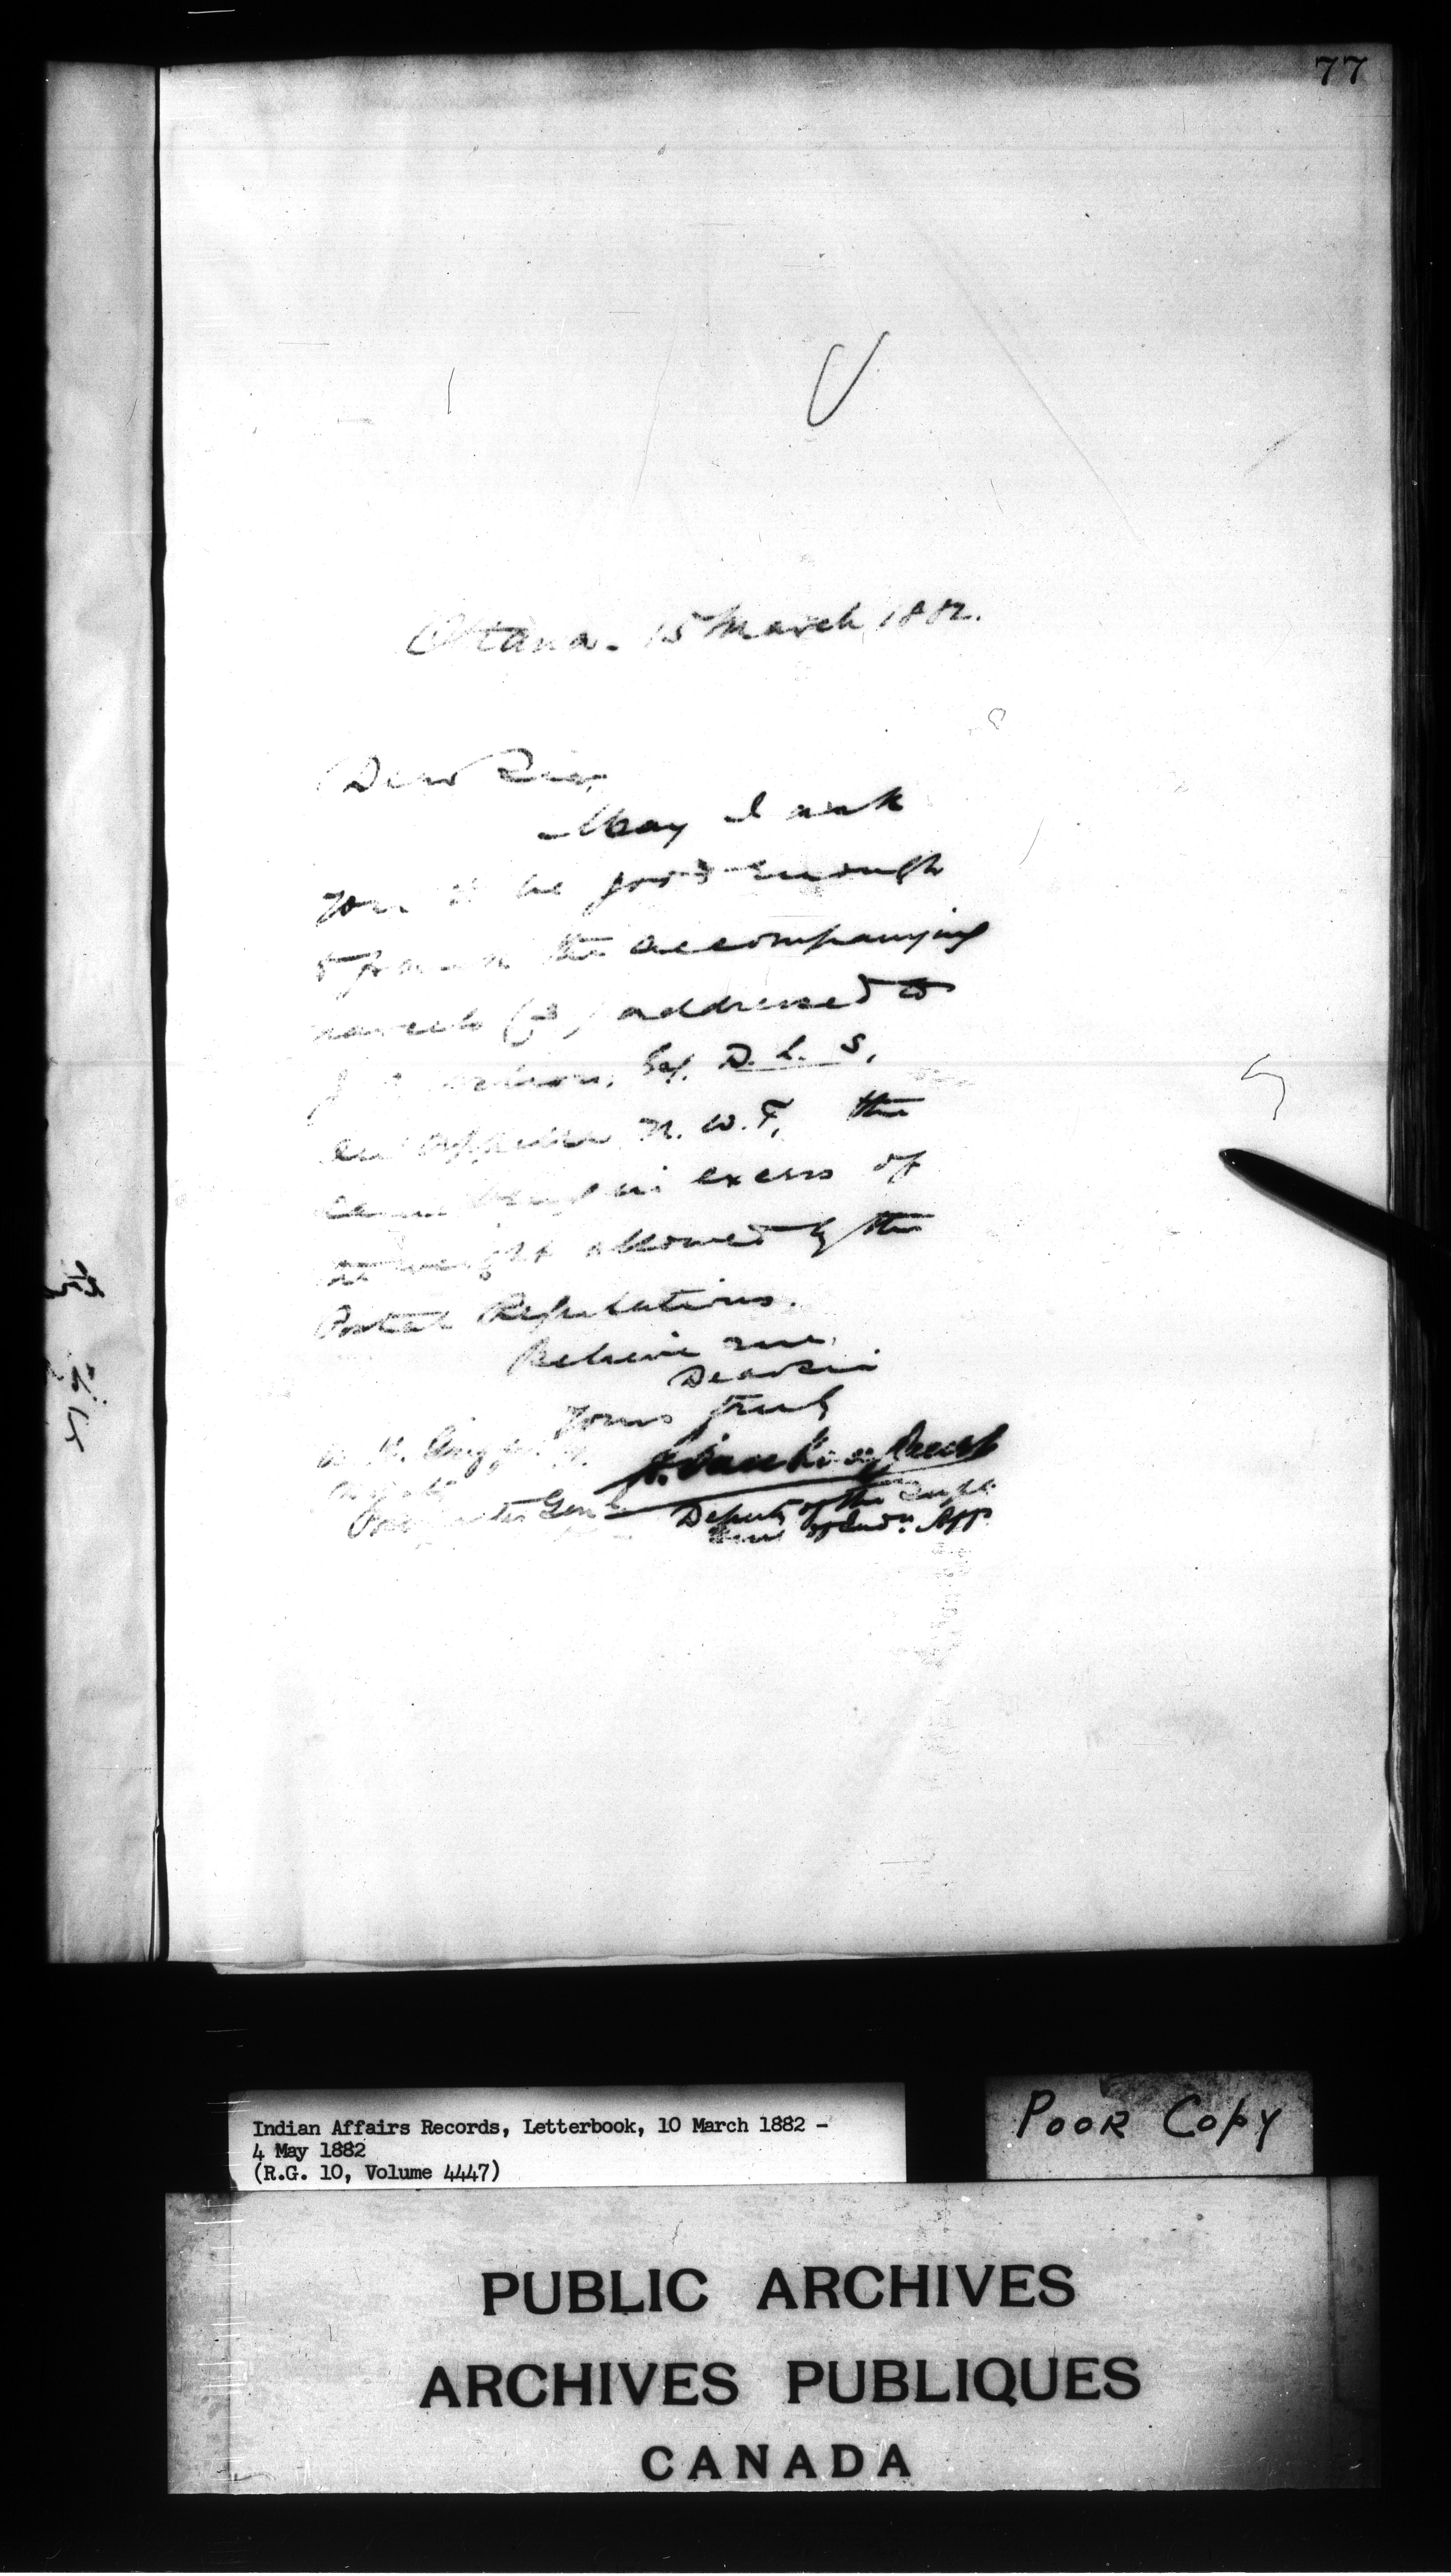 77
Ottawa. 15 March, 1882.
Dear Sir,
May I ask
you to be good enough
to frank the accompanying
parcels (3) addressed to
Nelson, Esq. D. L. S.,
N. W. T., the
same being in excess of
the weight allowed by the
Postal Regulations.
Believe me,
Dear Sir
Yours truly
L. Vankoughnet
Deputy of the Supt
Genl of Indn. Aff.
W. H. Griffin Esq.
Deputy
Postmaster Genl
Indian Affairs Records, Letterbook, 10 March 1882 -
4 May 1882
(R.G. 10, Volume 4447)
POOR COPY
PUBLIC ARCHIVES
ARCHIVES PUBLIQUES
CANADA